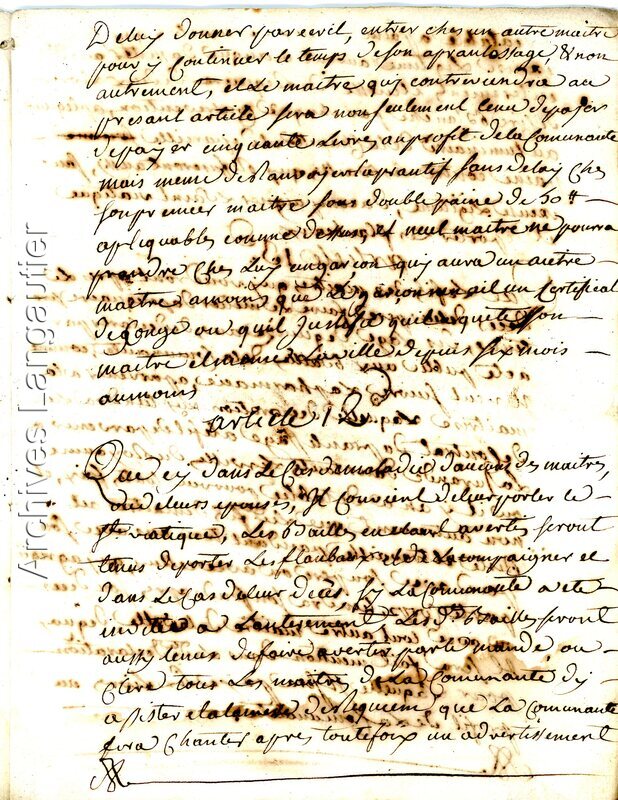 De luy donner par ecrit, entrer ches un autre maitre
pour y Continuer le temps de son aprantissage, & non
autrement, et Le maitre quy contreviendra au
presant article sera non seulement tenu
de payer cinquante Livres au profit de la Comunauté
mais meme de Ranvoyer l'aprantif sans delay Ches
son premier maitre sous double paine de 50tt
apliquables comme dessus, et neul maitre ne pourra
prendre Ches Luy un garçon quy aura un autre
maitre amoins que Le garçon n'ait un Certificat
de Congé ou quil Justifie quil a quité son
maitre et meme La ville depuis six mois
aumoins
article 12
Que sy dans Le Cas de maladie d'aucuns des maitres,
ou de leurs epouses, Il Convient de leur porter le
st viatique, Les Bailles en etant avertis seront
tenus de porter Les flanbaux et de L'acompaigner et
dans Le Cas de Leur décès, sy La Comunauté a ete
invitée a L'anterrement, Les ds Bailles seront
aussy tenus de faire avertir par le mandé ou
Clerc tous Les maitres de La Comunauté d'y
assister et a la messe de Requiem que La Comunauté
fera Chanter apres toutefoix un advertissement
Archives Langautier